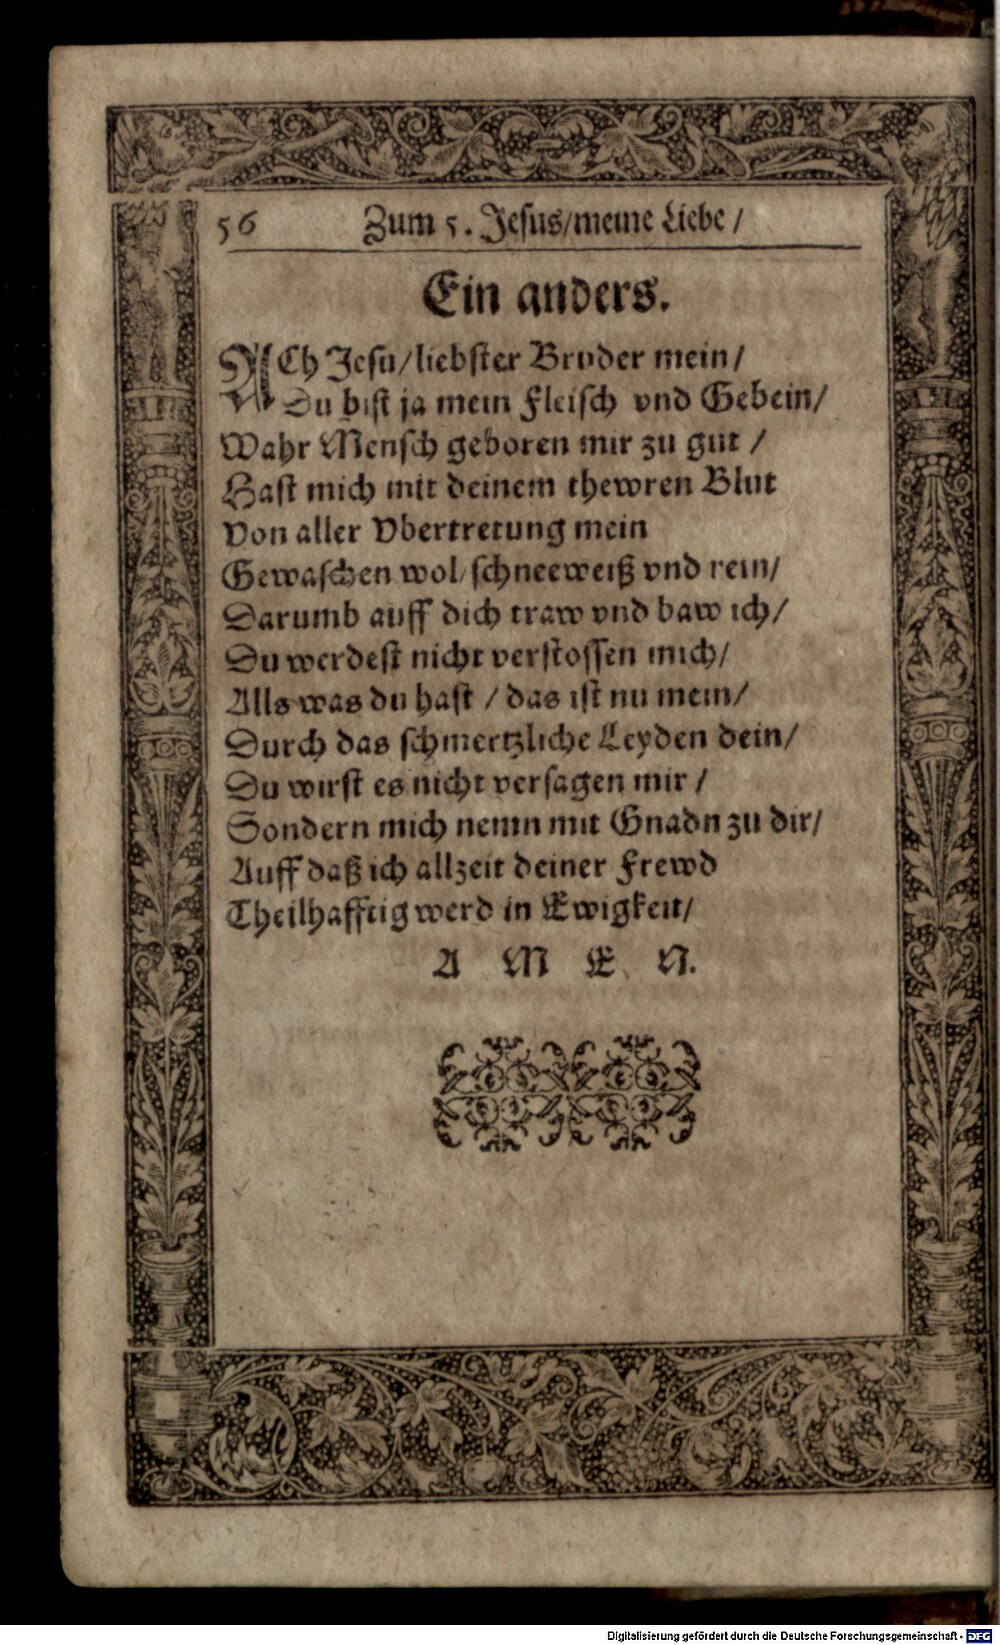 56 Zum 5. Jesus/meine Liebe/
Ein anders.
ACh Jesu/liebster Bruder mein/
Du bist ja mein Fleisch vnd Gebein/
Wahr Mensch geboren mir zu gut /
Hast mich mit deinem thewren Blut
Von aller Vbertretung mein
Gewaschen wol/schneeweiß vnd rein/
Darumb auff dich traw vnd baw ich/
Du werdest nicht verstossen mich/
Alls was du hast / das ist nu mein/
Durch das schmertzliche Leyden dein/
Du wirst es nicht versagen mir /
Sondern mich nemn mit Gnadn zu dir/
Auff daß ich allzeit deiner Frewd
Theilhafftig werd in Ewigkeit/
A M E N.
Digitalisierung gefördert durch die Deutsche Forschungsgemeinschaft - DFG